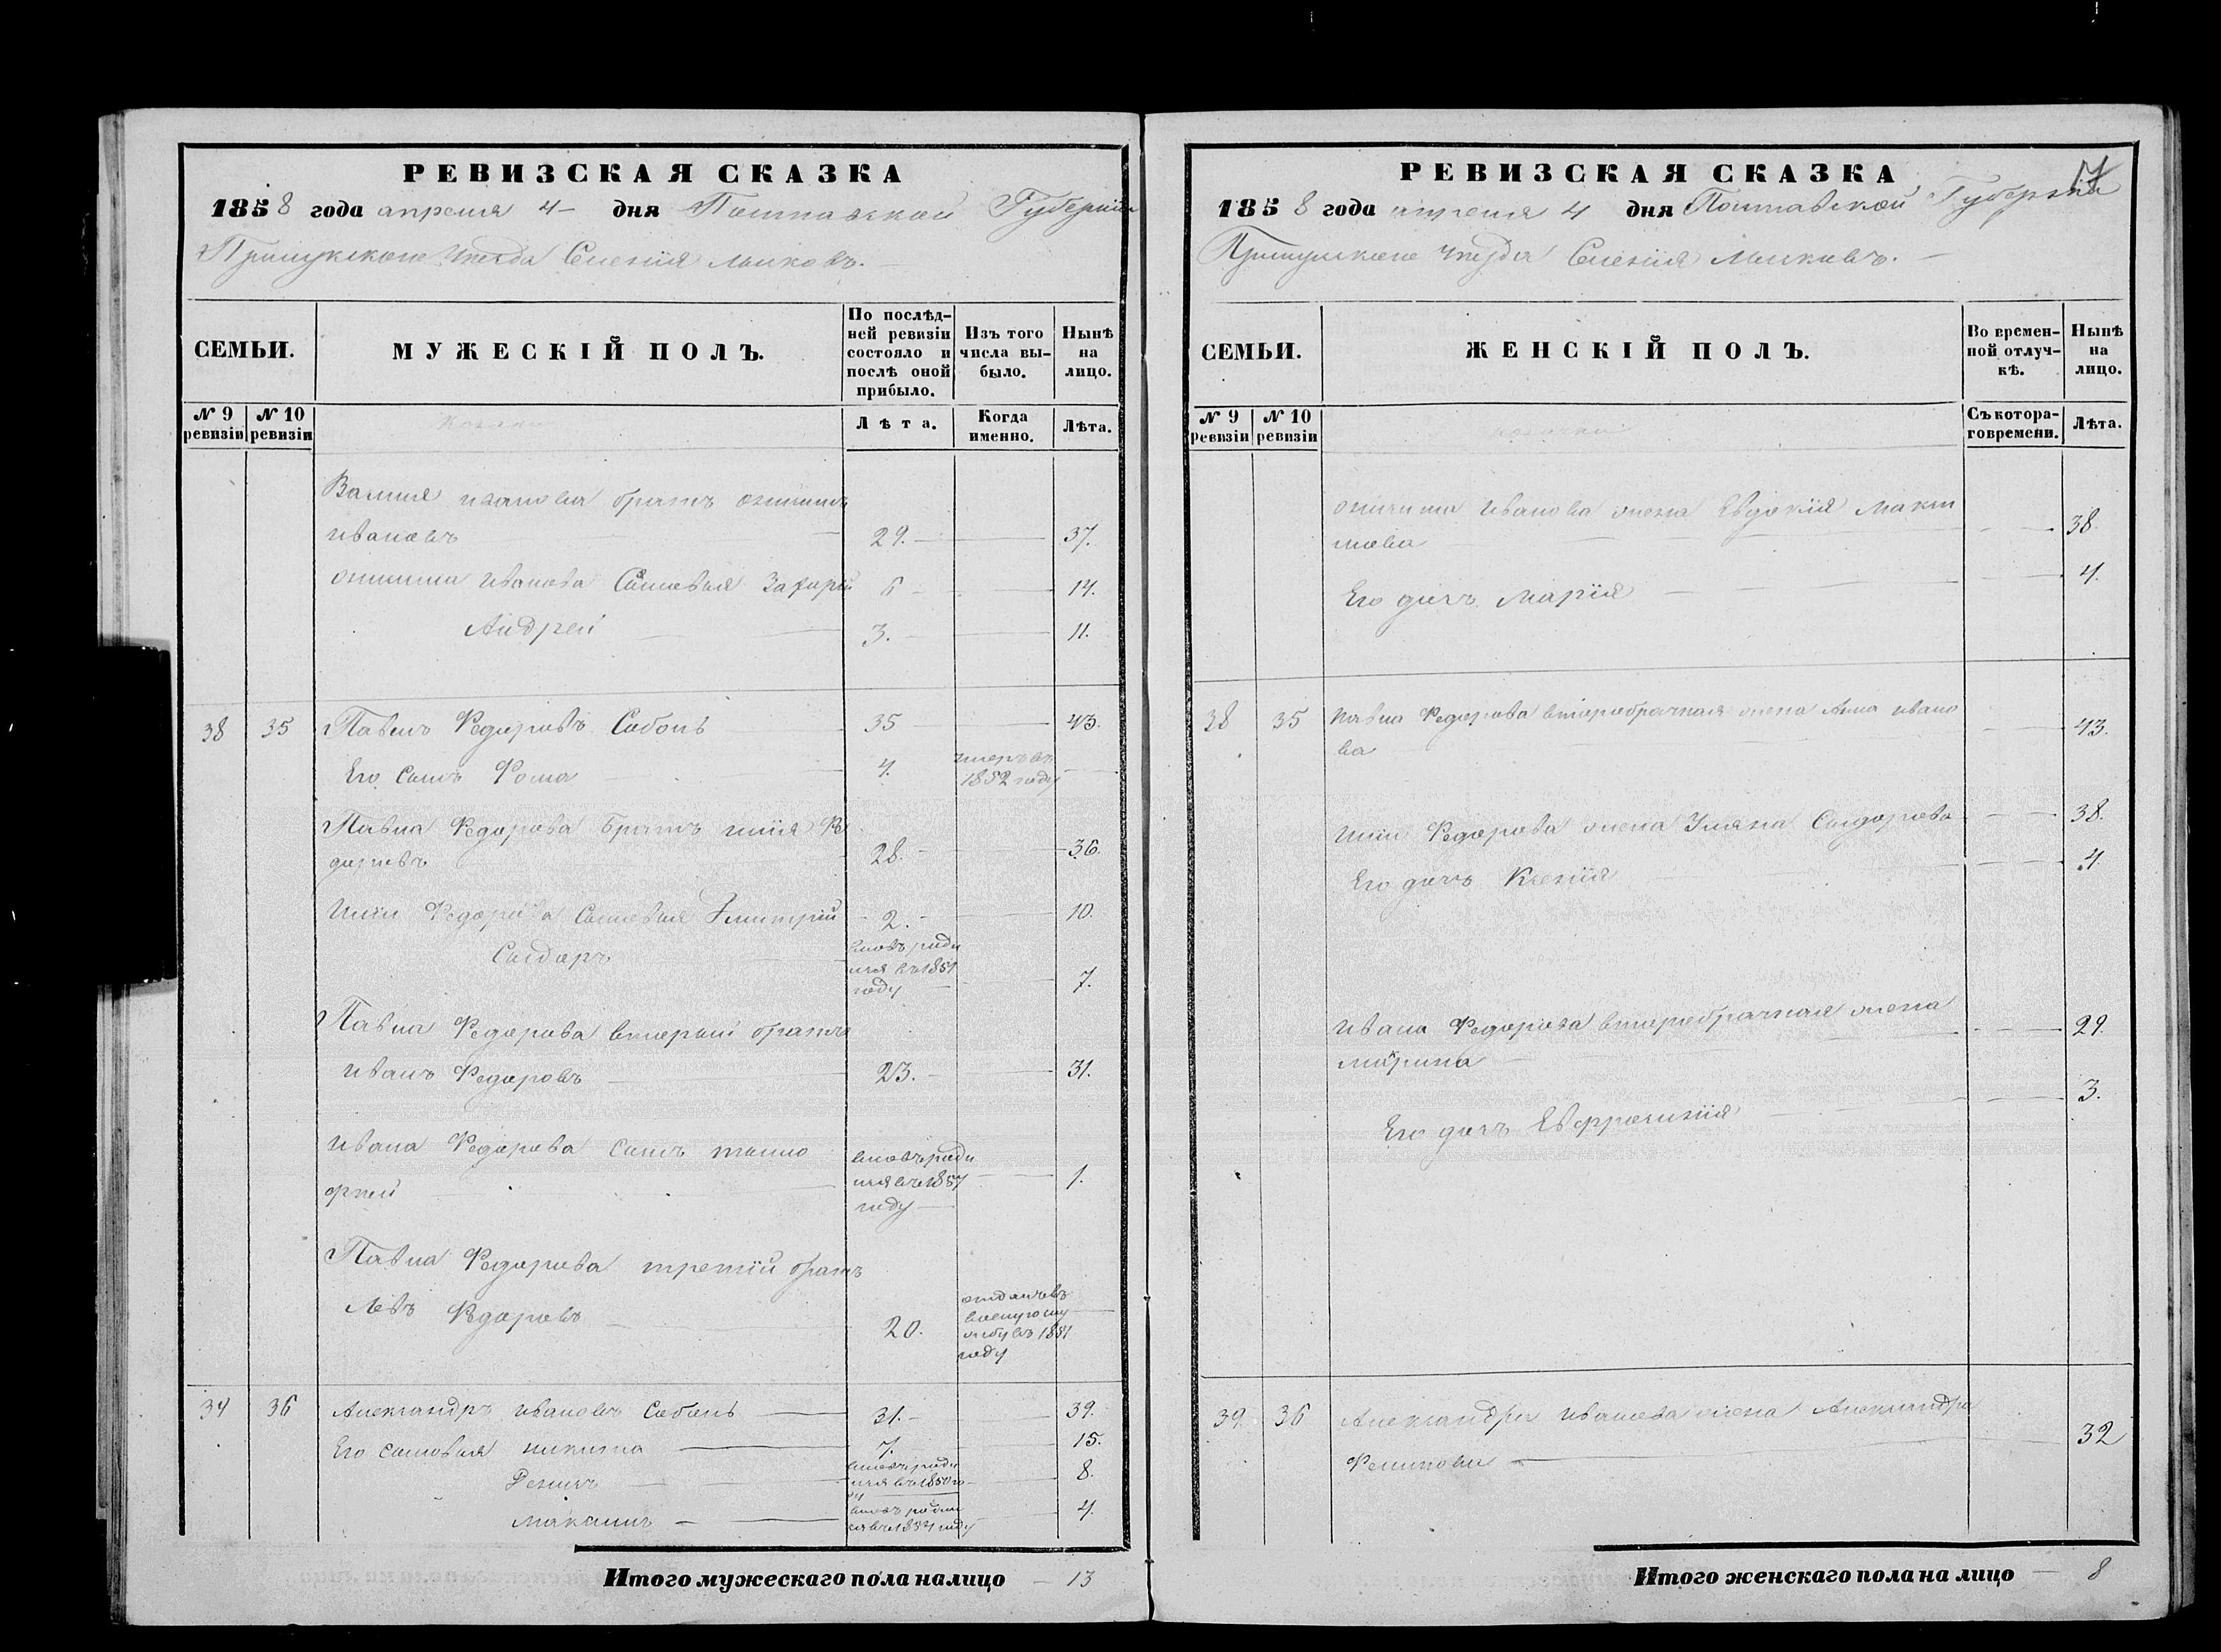 РЕВИЗСКАЯ СКАЗКА
1858 года апреля 4 дня Полтавской Губернии
Прилукского Уезда Селения Мыковъ.
СЕМЬИ.
МУЖЕСКІЙ ПОЛЪ.
По послѣд-
ней ревизіи
состояло и
послѣ оной
прибыло.
Изъ того
числа вы-
было.
Нынѣ
на
лицо.
№ 9
ревизіи
№ 10
ревизіи
Козаки
Лѣта.
Когда
именно.
Лѣта.
иванова братъ
ивановъ 29. 37.
иванова Сыновья Захарій 6 14.
Андрей 3. 11.
38 35 Павелъ Федоровъ Соболь 35 43.
Его сынъ Фома 4. умеръ въ
1852 году
Павла Федорова братъ илія Фе
доровъ 28. 36.
Иліи Федорова Сыновья Дмитрій 2. 10.
Сидоръ вновь роди
лся въ 1851
году 7.
Павла Федорова вторый братъ
иванъ Федоровъ 23. 31.
ивана Федорова сынъ тимо
фей вновь роди
лся въ 1857
году 1.
Павла Федорова третій братъ
Левъ Федоровъ 20. отданъ въ
военную слу
жбу въ 1851
году
39 36 Александръ ивановъ Соболь 31. 39.
Его сыновья никита 7. 15.
Денисъ вновь роди
лся въ 1850 го
ду 8.
Максимъ вновь родил
ся въ 1854 году 4.
Итого мужескаго пола налицо 13
РЕВИЗСКАЯ СКАЗКА 17
1858 года апреля 4 дня Полтавской Губерніи
Прилукского Уезда Селенія Мыковъ.
СЕМЬИ.
ЖЕНСКІЙ ПОЛЪ.
Во времен-
ной отлуч-
кѣ.
Нынѣ
на
лицо.
№ 9
ревизіи
№ 10
ревизіи
козачки
Съ котора-
го времени.
Лѣта.
иванова жена Евдокія Макси
мова 38.
Его дочь Марія 4.
38 35 Павла Федорова второбрачная жена Анна ивано
ва 43.
Иліи Федорова жена Уляна Сидорова 38.
Его дочь Ксенія 4.
ивана Федорова второбрачная жена
марина 29.
Его дочь Евфросинія 3.
39. 36 Александра иванова жена Александра
Филипова 32
Итого женскаго пола на лицо 8